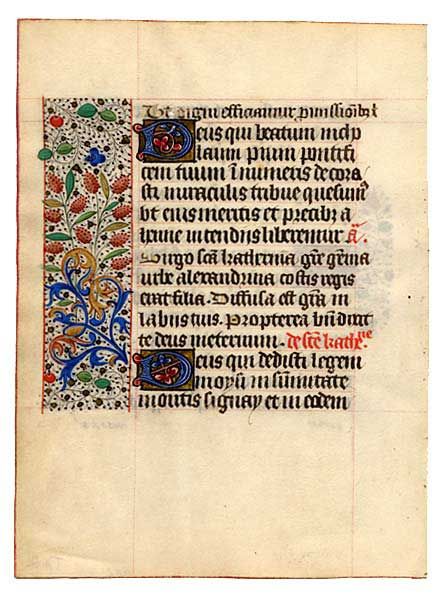 Ut digni efficiamur pmissionibȝ x
Deus qui beatum nicho
laum pium pontifi
cem tuum īnumeris decora
sti miraculis tribue quesumꝰ
vt eius meritis et precibȝ a
iehenne incendijs liberemur ā.
Virgo scā katherina grē gēma
vrbe alexandrina costis regis
erat filia. Diffusa est grā in
labiis tuis. Propterea bn̄dixit
te deus in eternum. de stē kathne
Deus qui dedisti legem
moysi in sūmitate
montis signay et in eodem